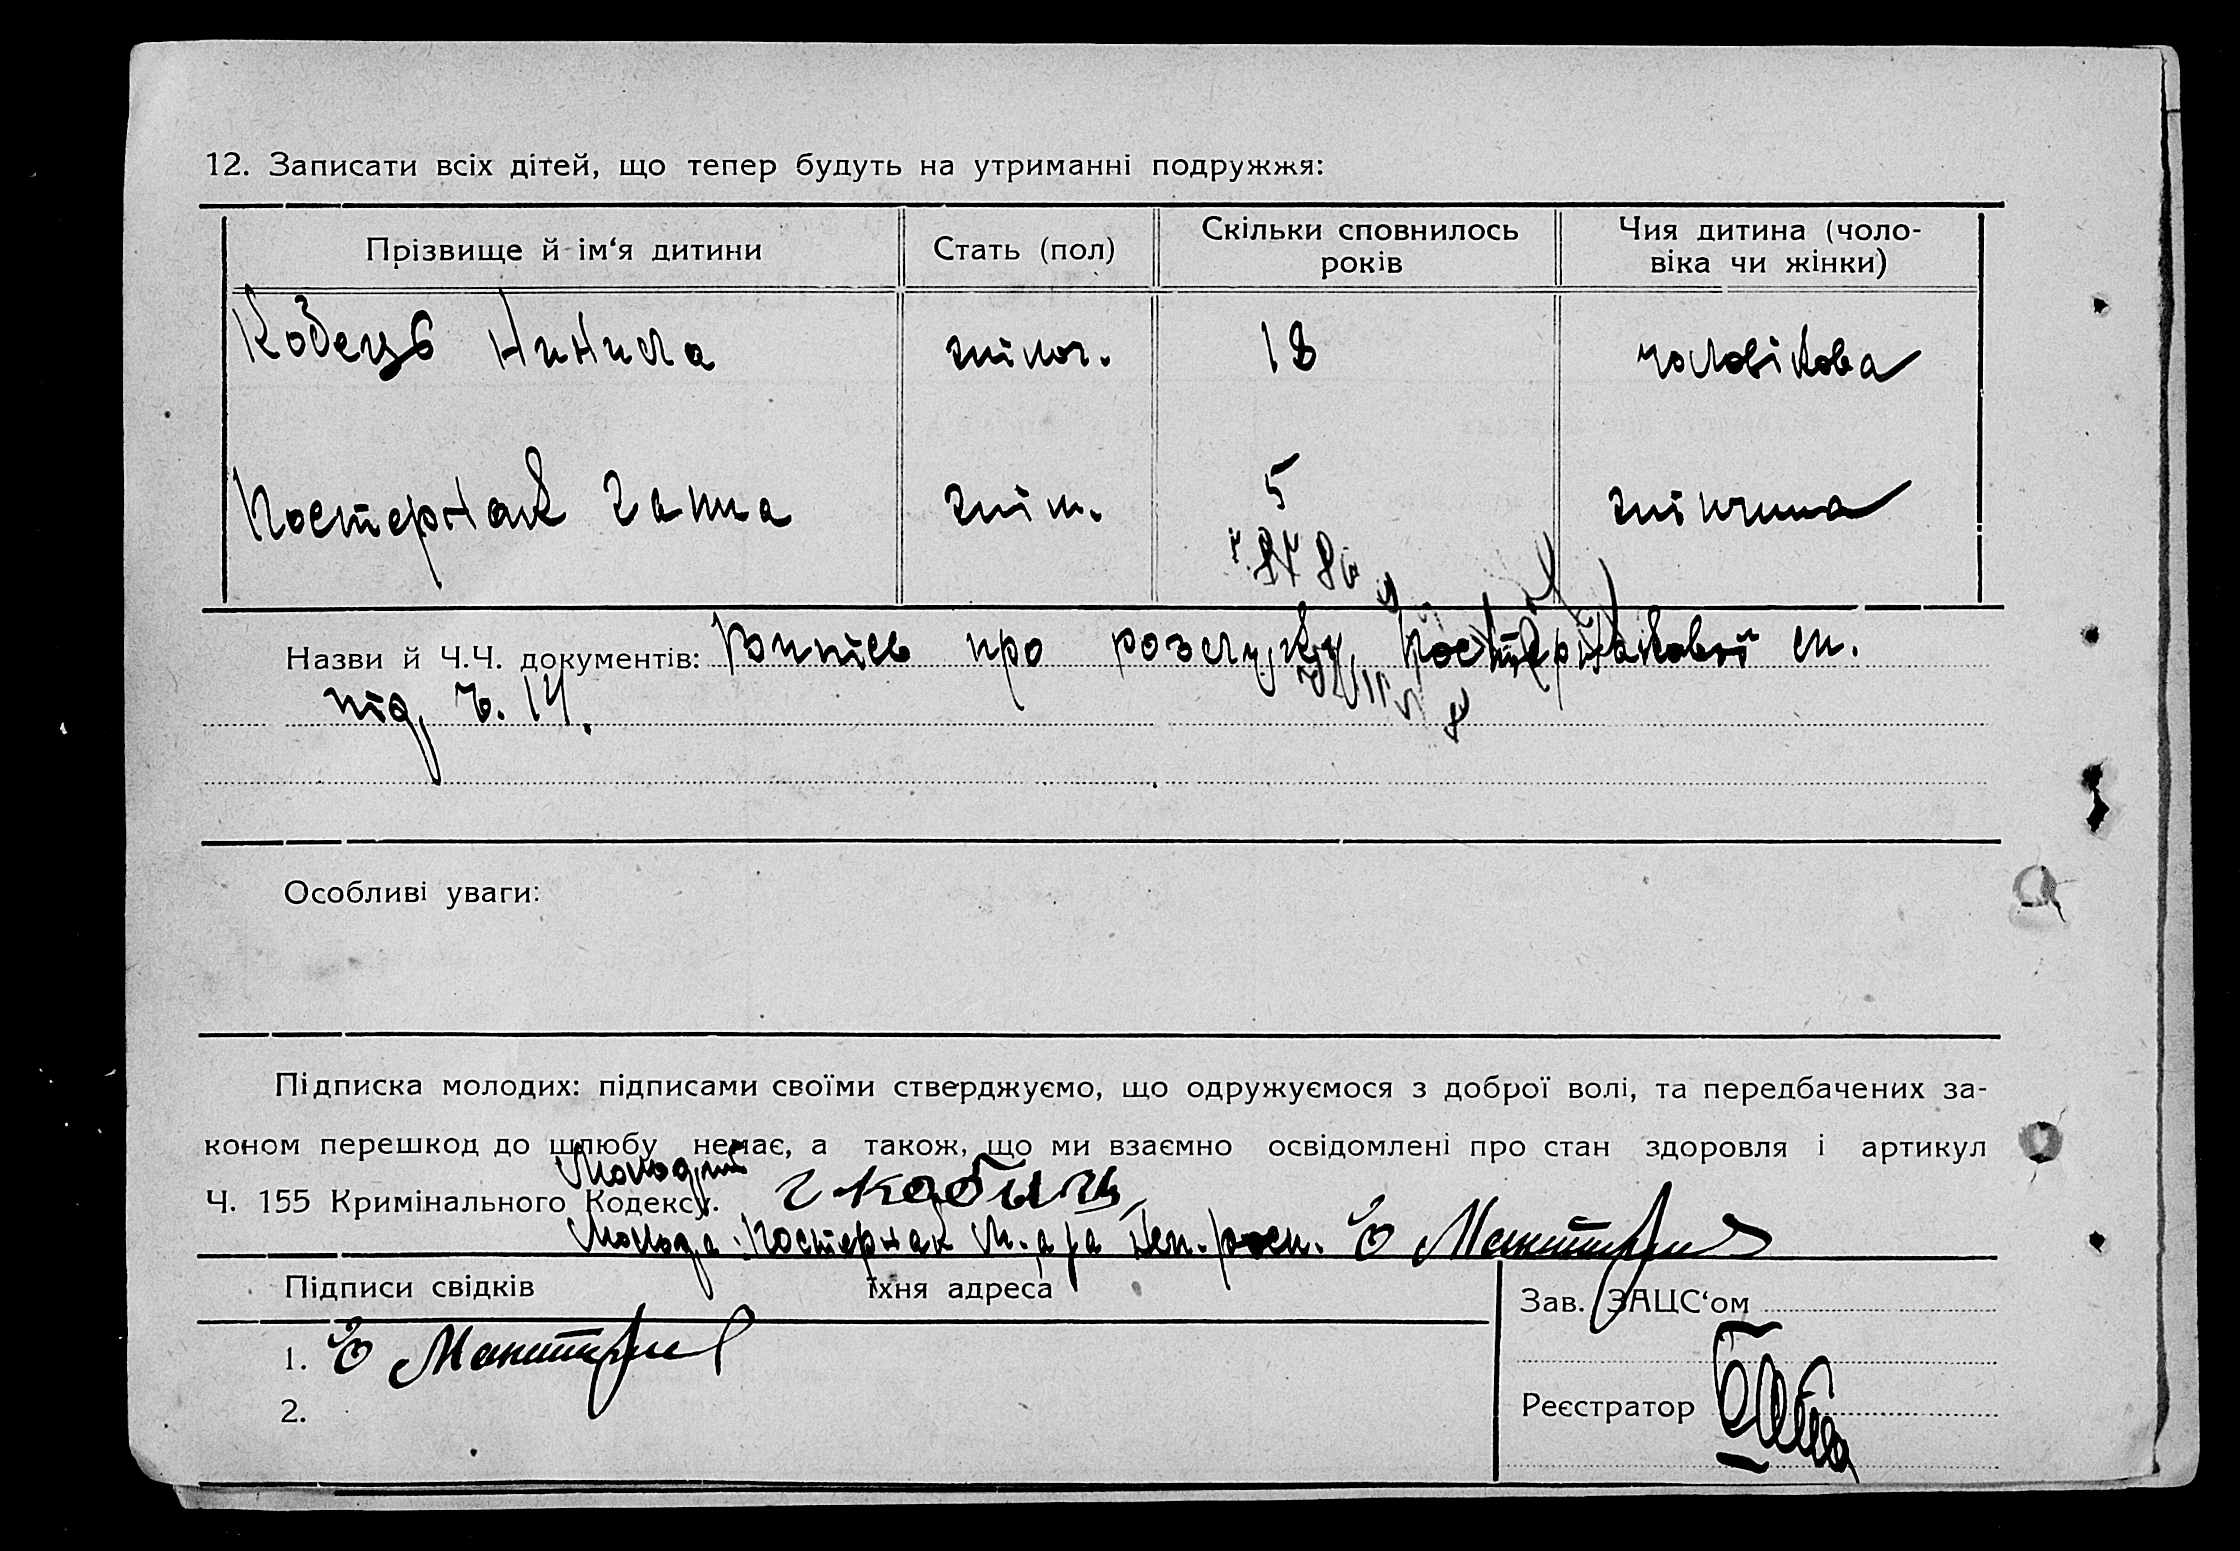 12. Записати всіх дітей, що тепер будуть на утриманні подружжя:
Прізвище й ім‘я дитини Стать (пол) Скільки сповнилось років Чия дитина (чоло-віка чи жінки)
Кобець жіноч. 18 чоловікова
Костернак Ганна жін. 5 жінчина
Назви й Ч.Ч. документів: про розлуку
під ч. 14.
Особливі уваги:
Підписка молодих: підписами своїми стверджуємо, що одружуємося з доброї волі, та передбачених за-
коном перешкод до шлюбу немає, а також, що ми взаємно освідомлені про стан здоровля і артикул
Молодий
Ч. 155 Кримінального Кодексу.
Молода Костернак
Підписи свідків їхня адреса
Зав. ЗАЦС‘ом
1.
Реєстратор
2.